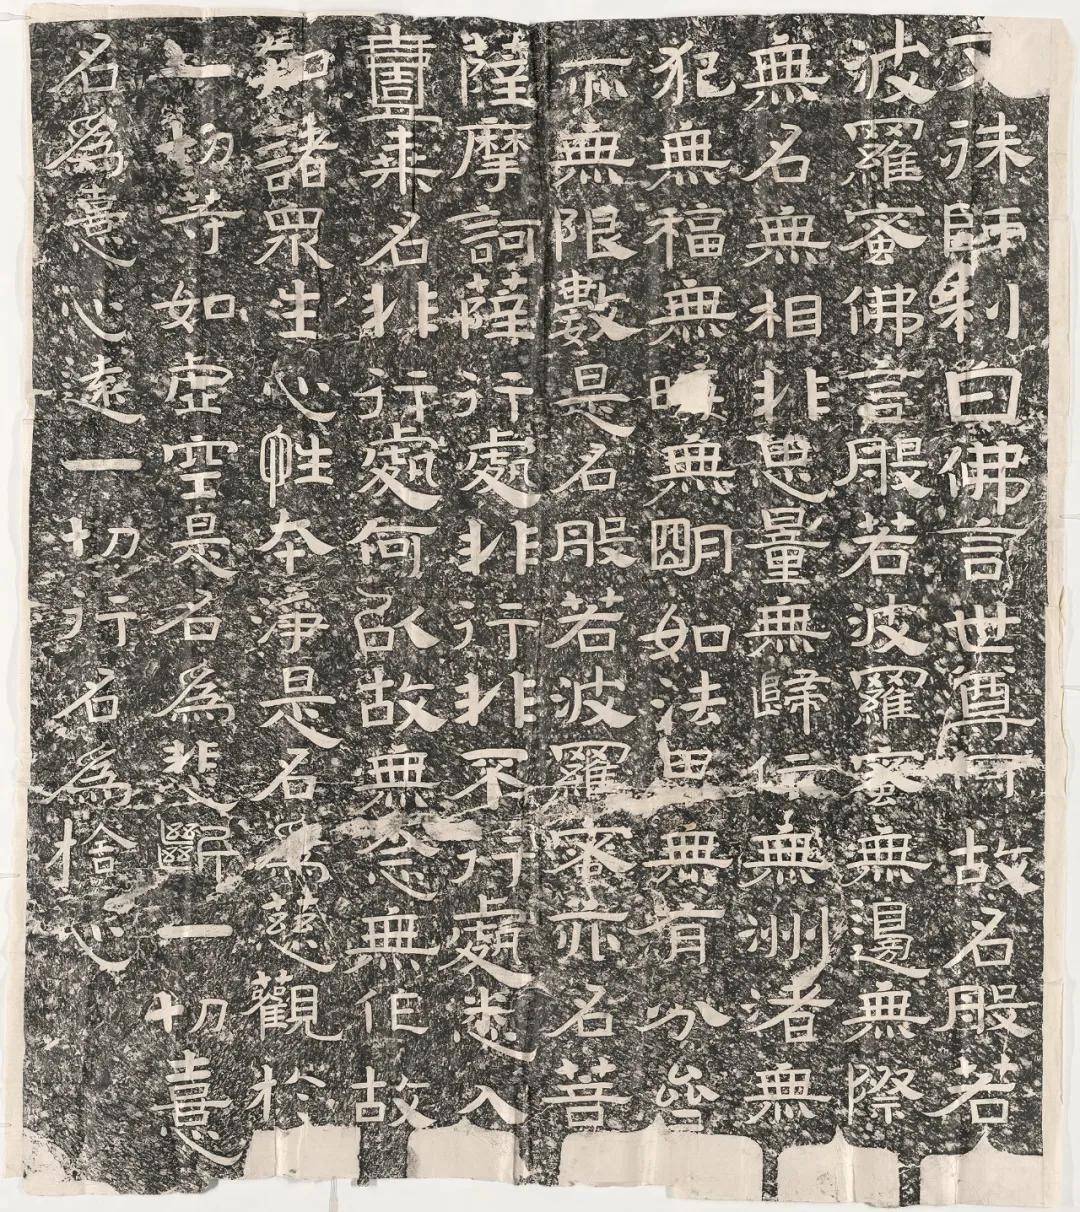 文殊師利曰佛言世尊何故名般若
波羅蜜佛言般若波羅蜜無邊無際
無名無相非思量無歸依無洲渚無
犯無福無晦無明如法界無有分齊
亦無限數是名般若波羅蜜亦名菩
薩摩訶薩行處非行非不行處悉入
壹乘名非行處何以故無念無作故
知諸眾生心性本淨是名為慈觀於
一切等如虛空是名為悲斷一切憙
名為憙心遠一切行名為捨心